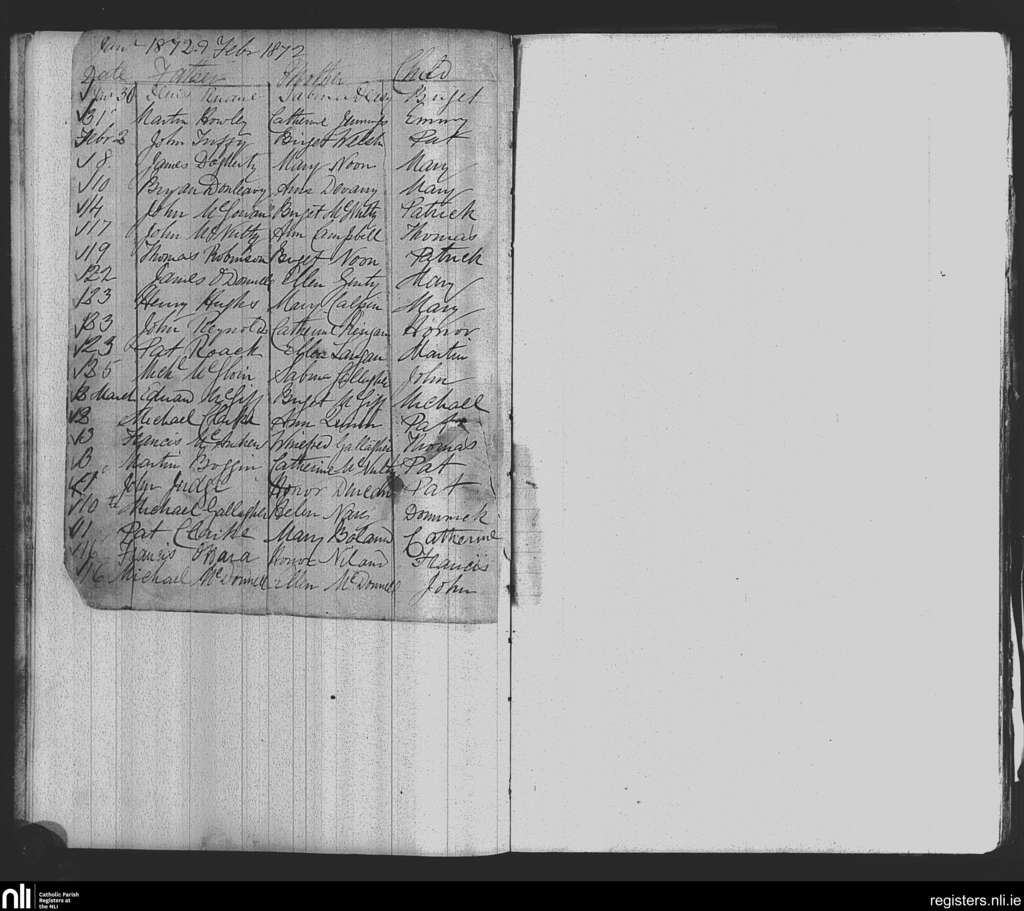 1872 & Febr 1872
Date Father Mother Child
Jan 30 Ruane Sabina Birget
31 Martin Rowley Catherine Jennings Emmy
Febr 2 John Tuffy Birget Welsh Pat
8 James Dogherty Mary Noon Mary
10 Bryan Donleavy Ann Devany Mary
14 John McGowan Birget McNulty Patrick
17 John McNulty Ann Campbell Thomas
19 Thomas Robinson Birget Noon Patrick
22 James O Donnell Ellen Ginty Mary
23 Henry Hughs Mary Mary
23 John Reynolds Catherine Honor
23 Pat Roach Ellen Langan Martin
25 Mich McGloin Sabina Gallagher John
3 March Edward McGiff Birget McGiff Michael
3 Michael Clarke Ann Pat
3 Francis McAndrew Winefred Gallagher Thomas
3 Martin Boggin Catherine McNulty Pat
John Judge Honor Duncan Pat
10th Michael Gallagher Helen Nares Dominick
11 Pat Clarke Mary Boland Catherine
16 Francis O'Hara Honor Niland Francis
16 Michael McDonnell Ellen McDonnell John
nli Catholic Parish
Registers at
the NLI
registers.nli.ie